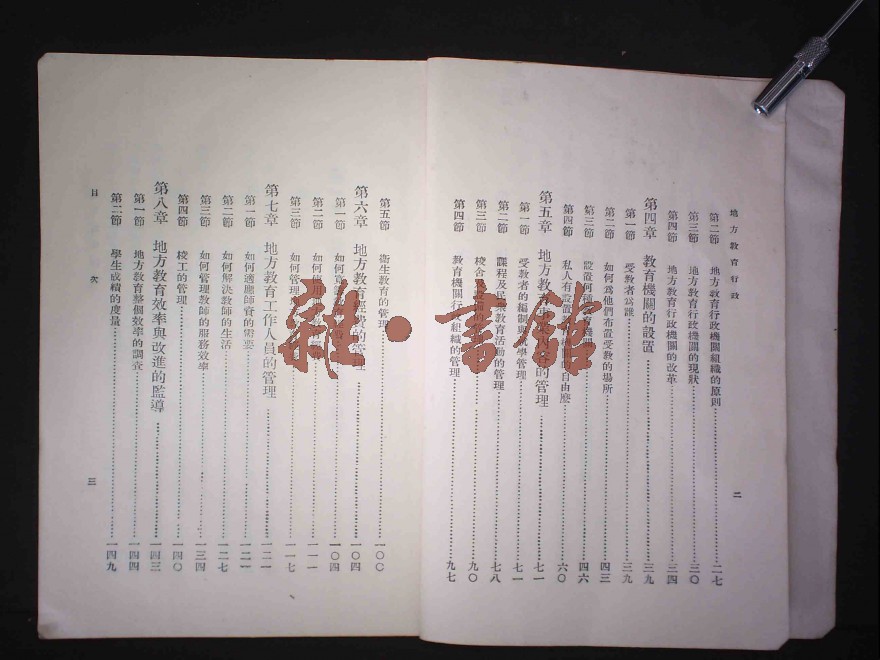 地方教育行政
第二節 地方教育行政機關組織的原則 二七
第三節 地方教育行政機關的現狀 三〇
第四節 地方教育行政機關的改革 三四
第四章 教育機關的設置 三九
第一節 受教者爲誰 三九
第二節 如何爲他們布置受教的場所 四三
第三節 設置何種 四六
第四節 私人有設置 自由麼 六〇
第五章 地方教育 的管理 七一
第一節 受教者的編制與 學管理 七一
第二節 課程及民衆教育活動的管理 七八
第三節 校舍及設備的 九〇
第四節 教育機關行 組織的管理 九七
二
第五節 衞生教育的管理 一〇〇
第六章 地方教育經費的管理 一〇四
第一節 如何 一〇四
第二節 如何 一一一
第三節 如何管理 一一七
第七章 地方教育工作人員的管理 一二一
第一節 如何適應師資的需要 一二一
第二節 如何解決教師的生活 一二七
第三節 如何管理教師的服務效率 一三四
第四節 校工的管理 一四〇
第八章 地方教育效率與改進的監導 一四三
第一節 地方教育整個效率的調查 一四四
第二節 學生成績的度量 一四九
目次
三
雜·書館